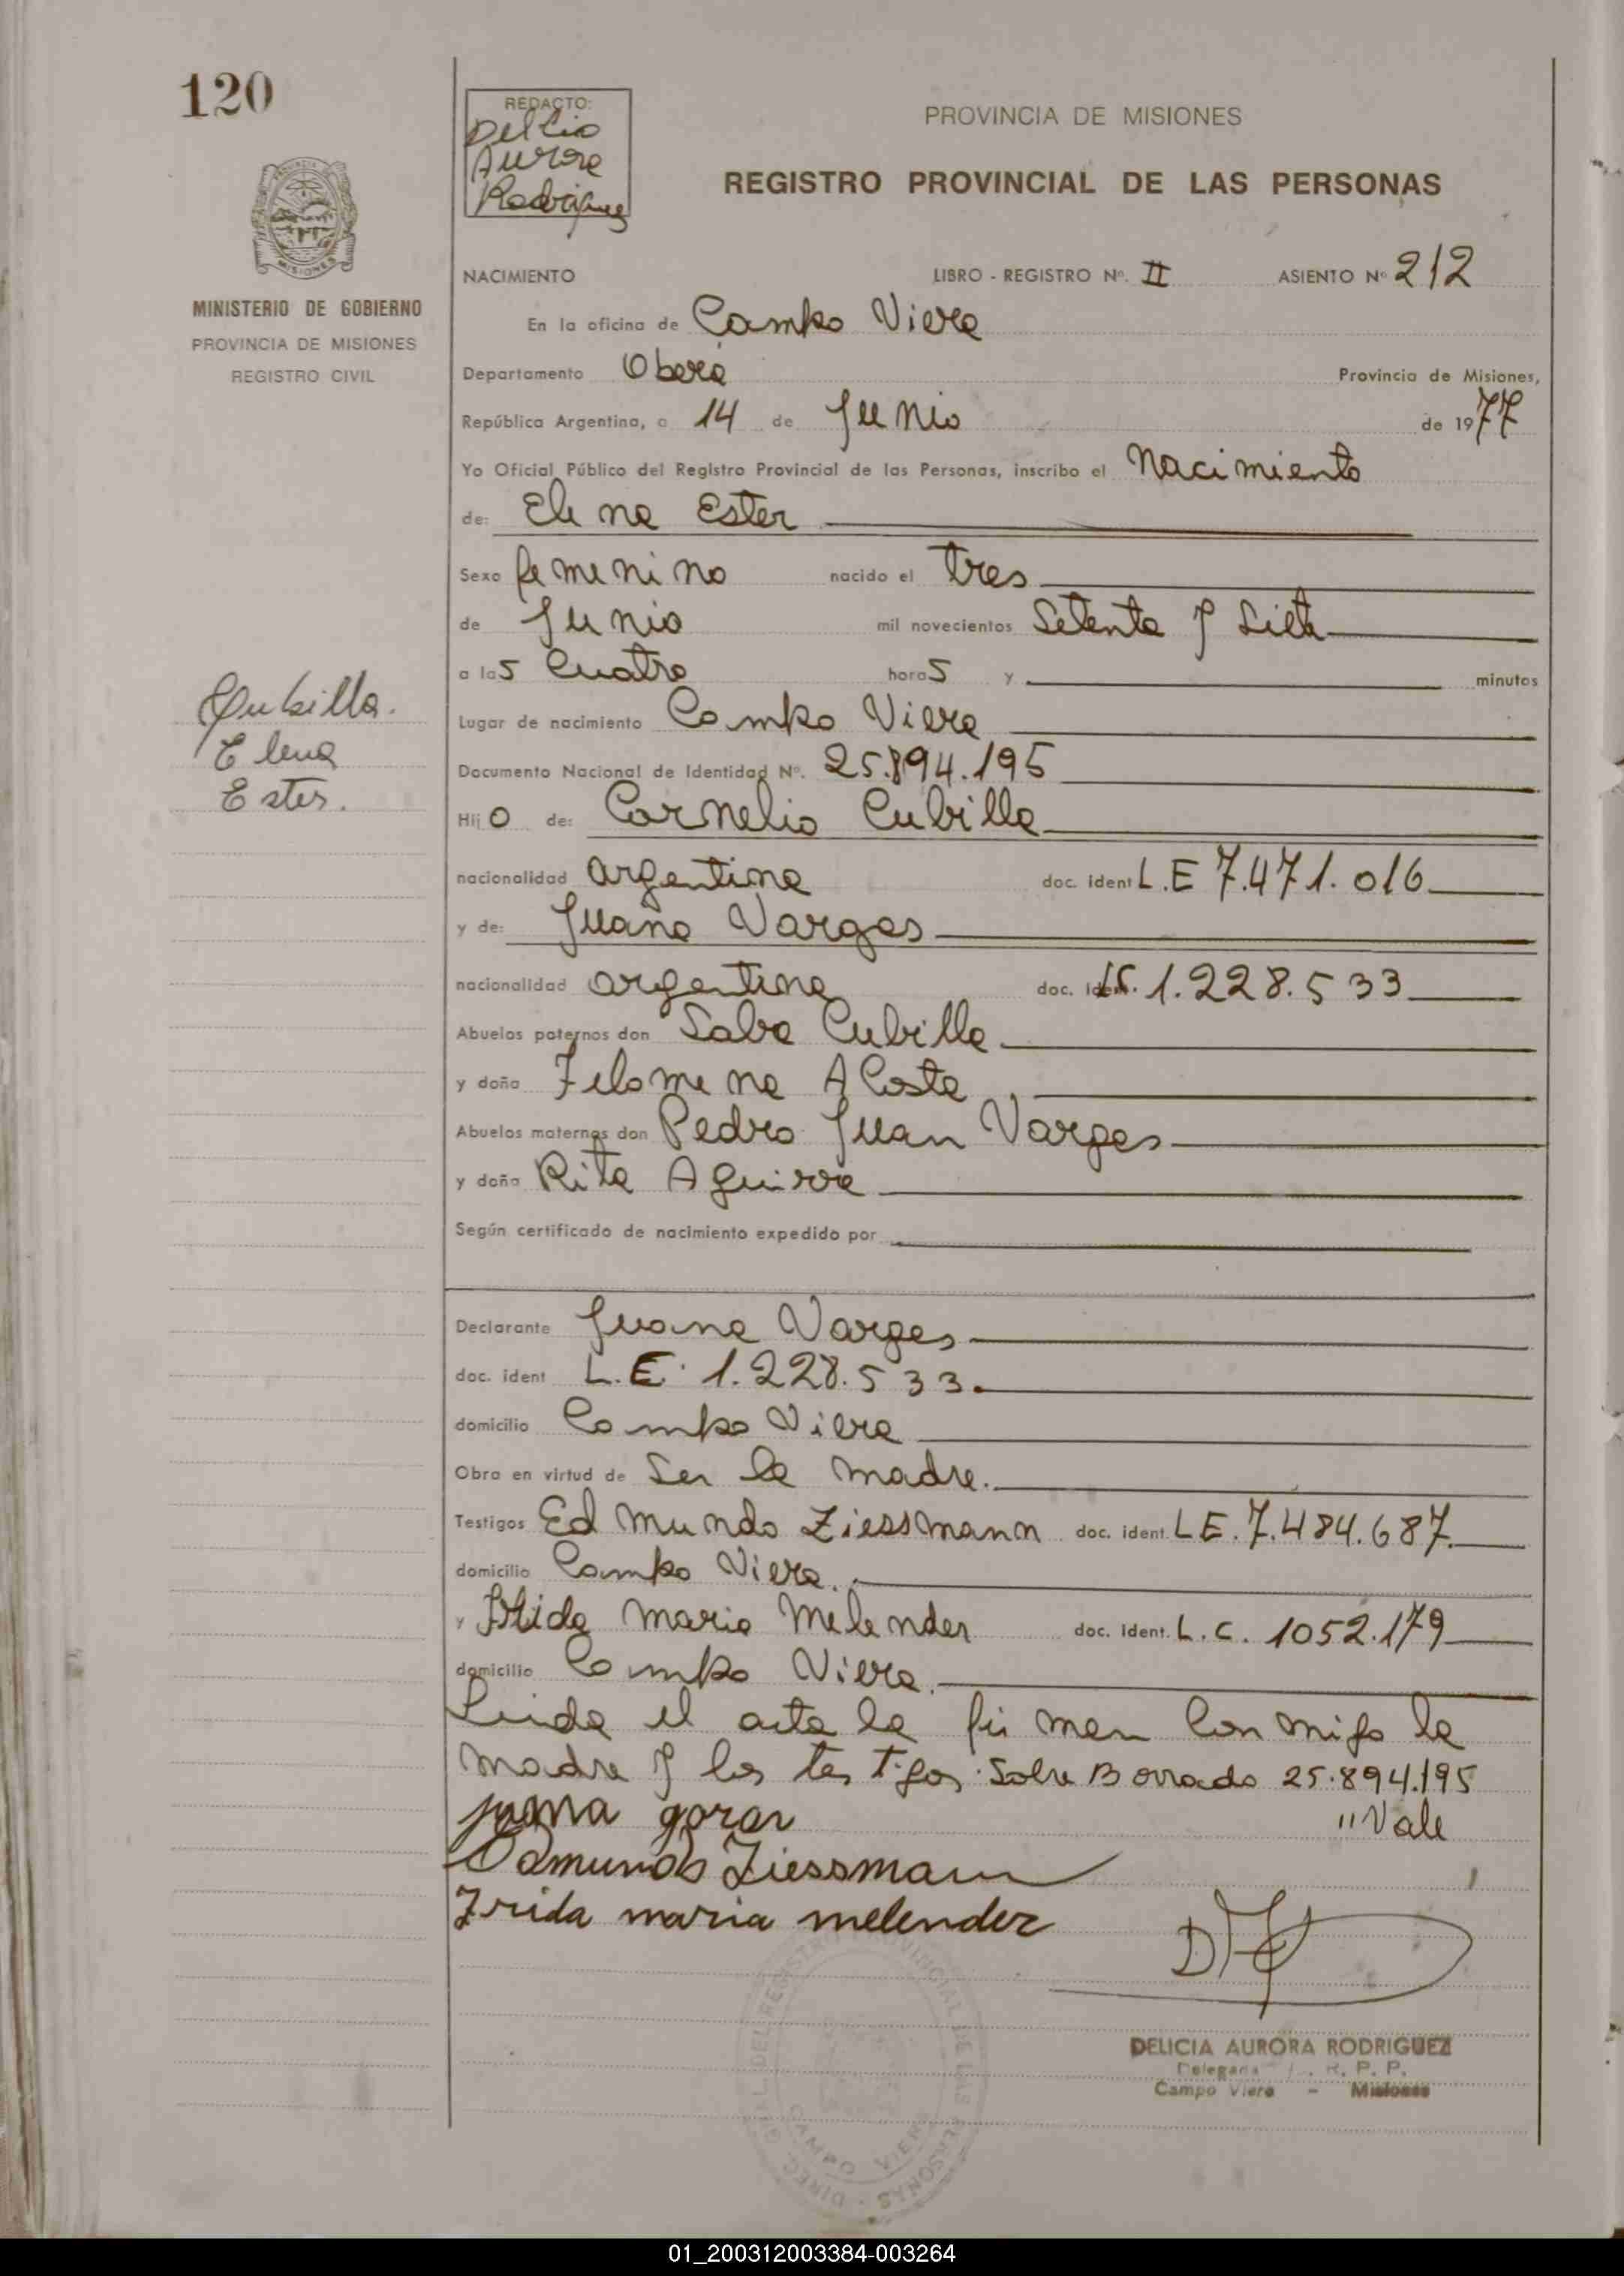 120
REDACTO:
Delicia
Aurora
Rodriguez
PROVINCIA DE MISIONES
REGISTRO PROVINCIAL DE LAS PERSONAS
MISIONES
MINISTERIO DE GOBIERNO
PROVINCIA DE MISIONES
REGISTRO CIVIL
NACIMIENTO LIBRO - REGISTRO Nº. II ASIENTO Nº 212
En la oficina de Campo Viera
Departamento Oberá Provincia de Misiones,
República Argentina, a 14 de Junio de 1977
Yo Oficial Público del Registro Provincial de las Personas, inscribo el Nacimiento
de: Elena Ester
Sexo femenino nacido el tres
de Junio mil novecientos Setenta y Siete
a las Cuatro horas y minutos
Cubilla.
Elena
Ester.
Lugar de nacimiento Campo Viera
Documento Nacional de Identidad Nº. 25.894.195
Hijo de: Cornelio Cubilla
nacionalidad argentina doc. ident L.E 7.471.016
y de: Juana Vargas
nacionalidad argentina doc. ident. 1.228.533
Abuelos paternos don Saba Cubilla
y doña Filomena Acosta
Abuelos maternos don Pedro Juan Vargas
y doña Rita Aguirre
Según certificado de nacimiento expedido por
Declarante Juana Vargas
doc. ident L.E. 1.228.533.
domicilio Campo Viera
Obra en virtud de Ser la madre.
Testigos Edmundo Ziessmann doc. ident. LE. 7.484.687.
domicilio Campo Viera.
y Frida Maria Melender doc. ident. L.C. 1052.179
domicilio Campo Viera.
Leida el acta la firman conmigo la
madre y los testigos. Sobre Borrado 25.894.195
"Vale
juana
Edmundo Ziessmann
Frida maria melender
DELICIA AURORA RODRIGUEZ
Delegada R. P. P.
Campo Viera - Misiones
DIREC. GRAL. DEL REGISTRO PROVINCIAL DE LAS PERSONAS
CAMPO VIERA
01_200312003384-003264